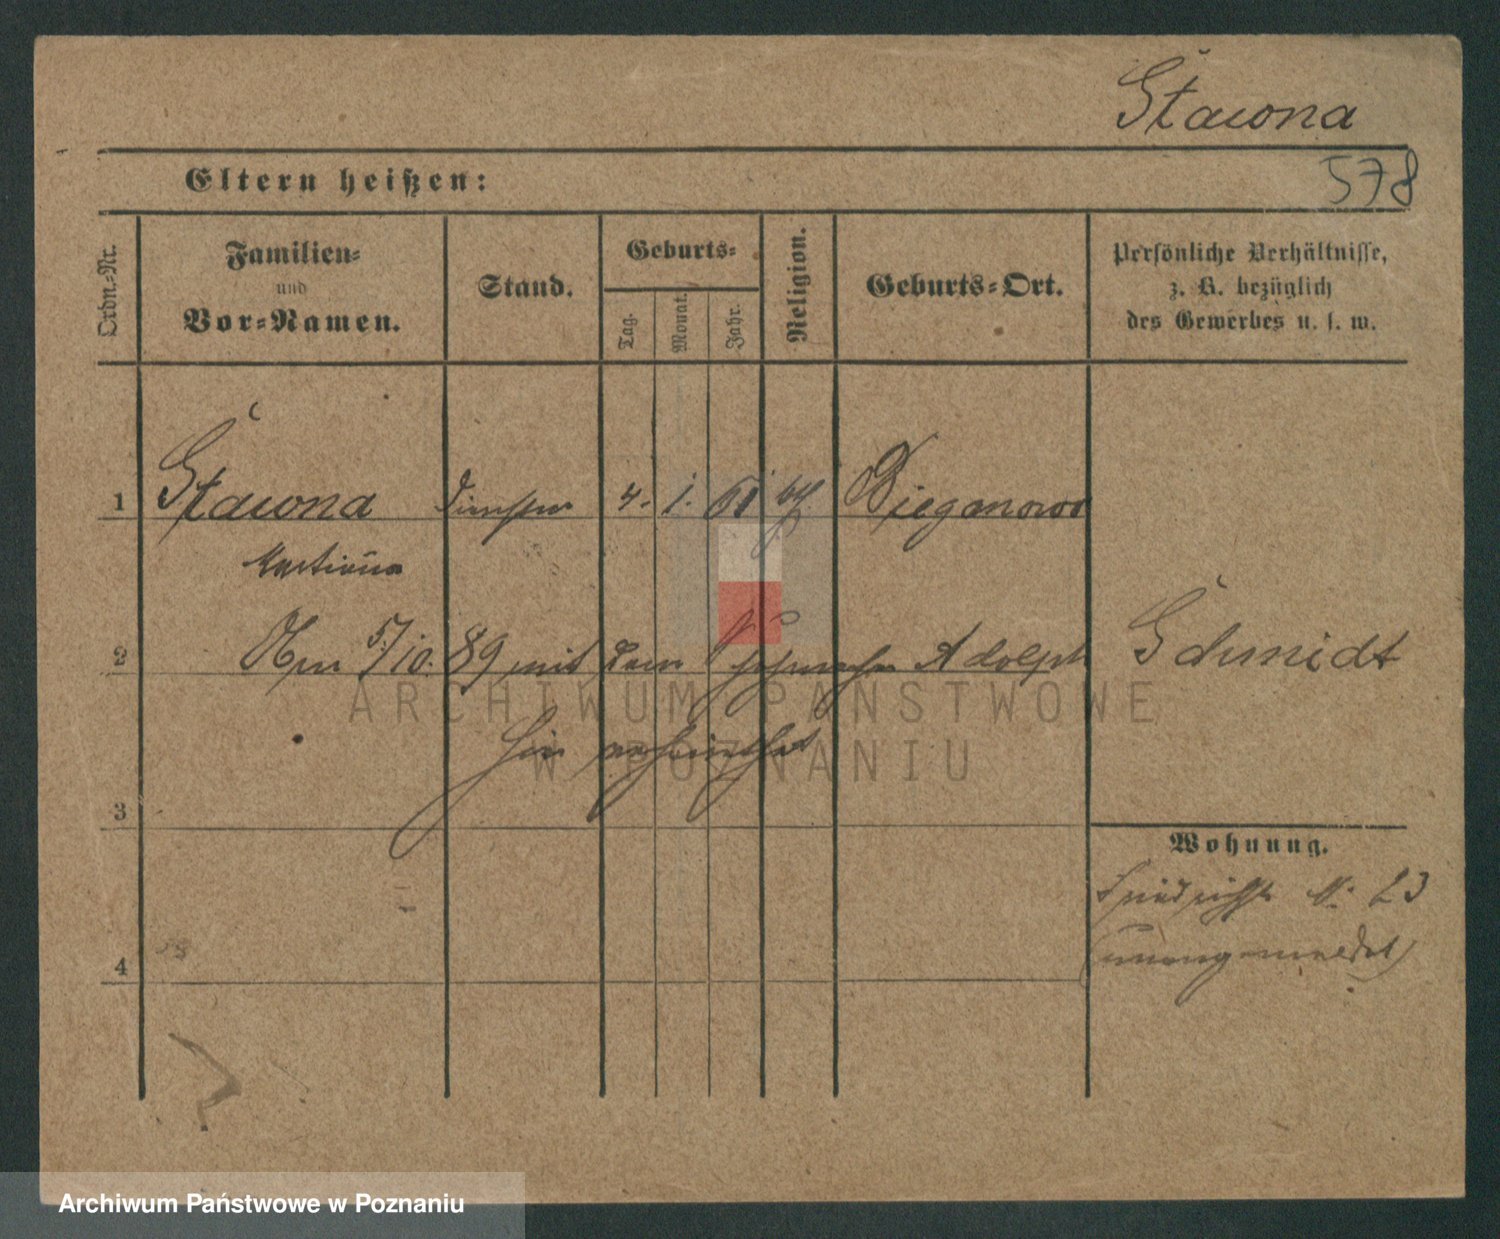 Stawna
578
Eltern heißen:
Ordn.-Nr.
Familien-
und
Vor-Namen.
Stand.
Geburts-
Tag.
Monat.
Jahr.
Religion.
Geburts-Ort.
Persönliche Verhältnisse,
z. B. bezüglich
des Gewerbes u. s. w.
1 Stawna 4. 1. 61 kth. Bieganowo
2 5/10. 89 mit dem Adolph Schmidt
hier verheirathet
3
Wohnung.
Friedrichstr. N. 23
(unangemeldet)
4
ARCHIWUM PAŃSTWOWE
W POZNANIU
Archiwum Państwowe w Poznaniu